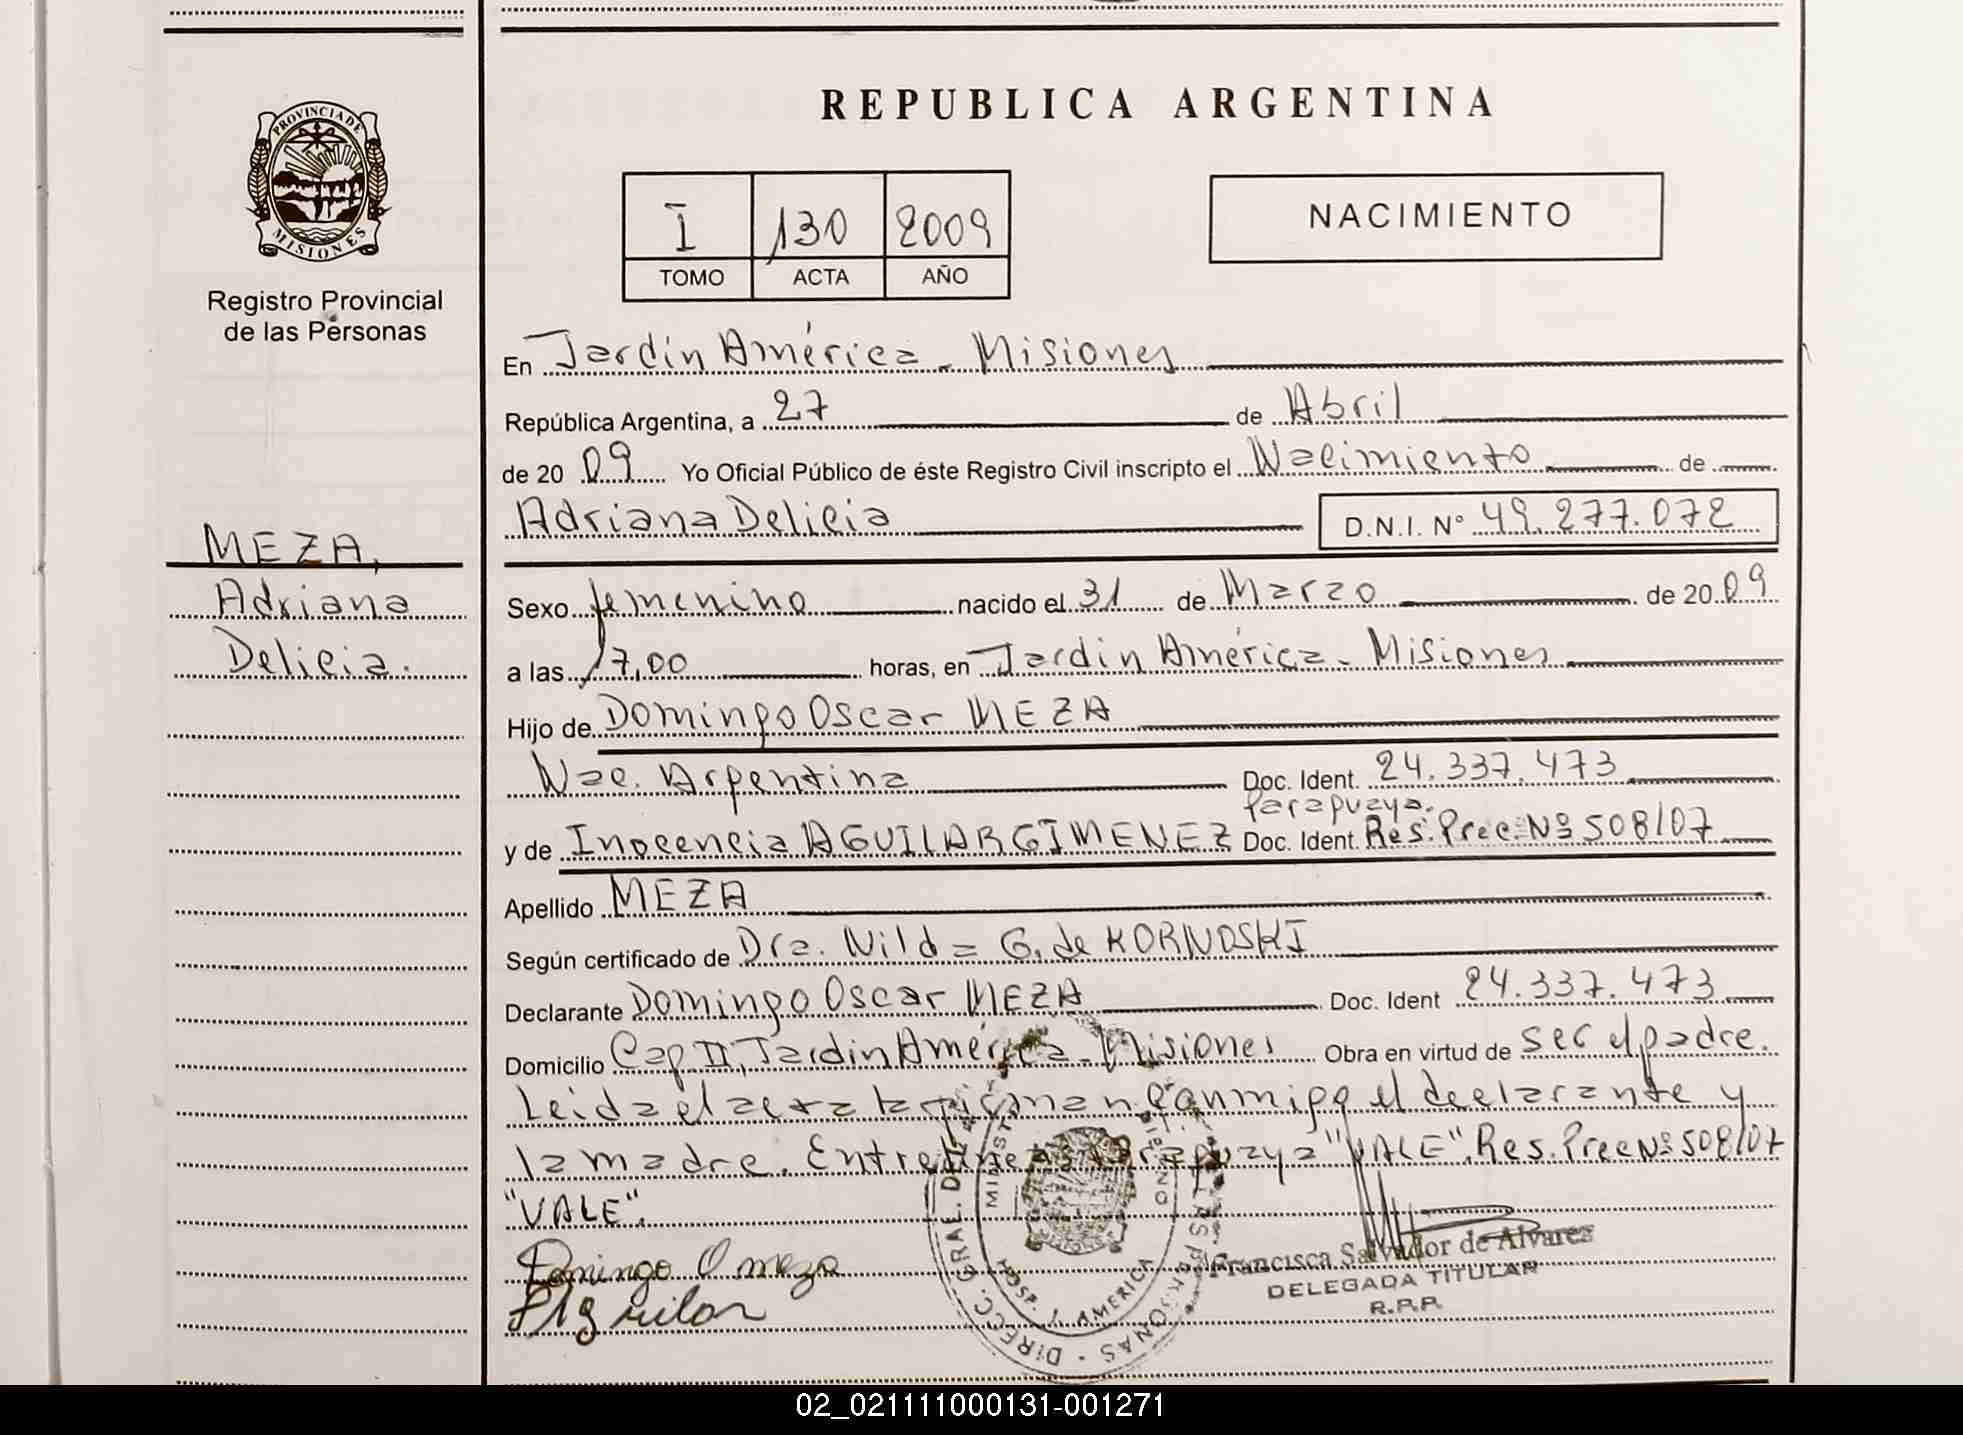 REPUBLICA ARGENTINA
PROVINCIA DE
MISIONES
Registro Provincial
de las Personas
I 130 2009
TOMO ACTA AÑO
NACIMIENTO
En Jardín América - Misiones
República Argentina, a 27 de Abril
de 20 09 Yo Oficial Público de éste Registro Civil inscripto el Nacimiento de
Adriana Delicia D.N.I. N° 49.277.072
MEZA,
Adriana
Delicia.
Sexo femenino nacido el 31 de Marzo de 20 09
a las 17,00 horas, en Jardín América - Misiones
Hijo de Domingo Oscar MEZA
Nac. Argentina Doc. Ident. 24.337.473
Paraguaya.
y de Inocencia AGUILAR GIMENEZ Doc. Ident. Res. Prec. Nº 508/07
Apellido MEZA
Según certificado de Dra. Nilda G. de KORNOSKI
Declarante Domingo Oscar MEZA Doc. Ident 24.337.473
Domicilio Cap II, Jardín América - Misiones Obra en virtud de ser el padre.
Leida el acta la firman conmigo el declarante y
la madre. Entrelineas Paraguaya "VALE". Res. Prec Nº 508/07
"VALE".
Domingo O meza
Aguilar
Francisca Salvador de Alvarez
DELEGADA TITULAR
R.P.P.
DIRECC. GRAL. DE PERSONAS
MINIST
AMERICA
02_021111000131-001271